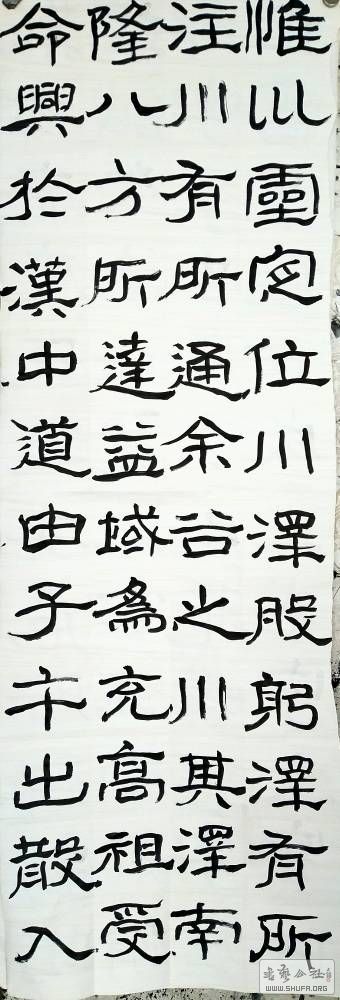 惟巛靈定位川澤股躬澤有所
注川有所通余谷之川其澤南
隆八方所達益域為充高祖受
命興於漢中道由子午出散入
WWW.SHUFA.ORG